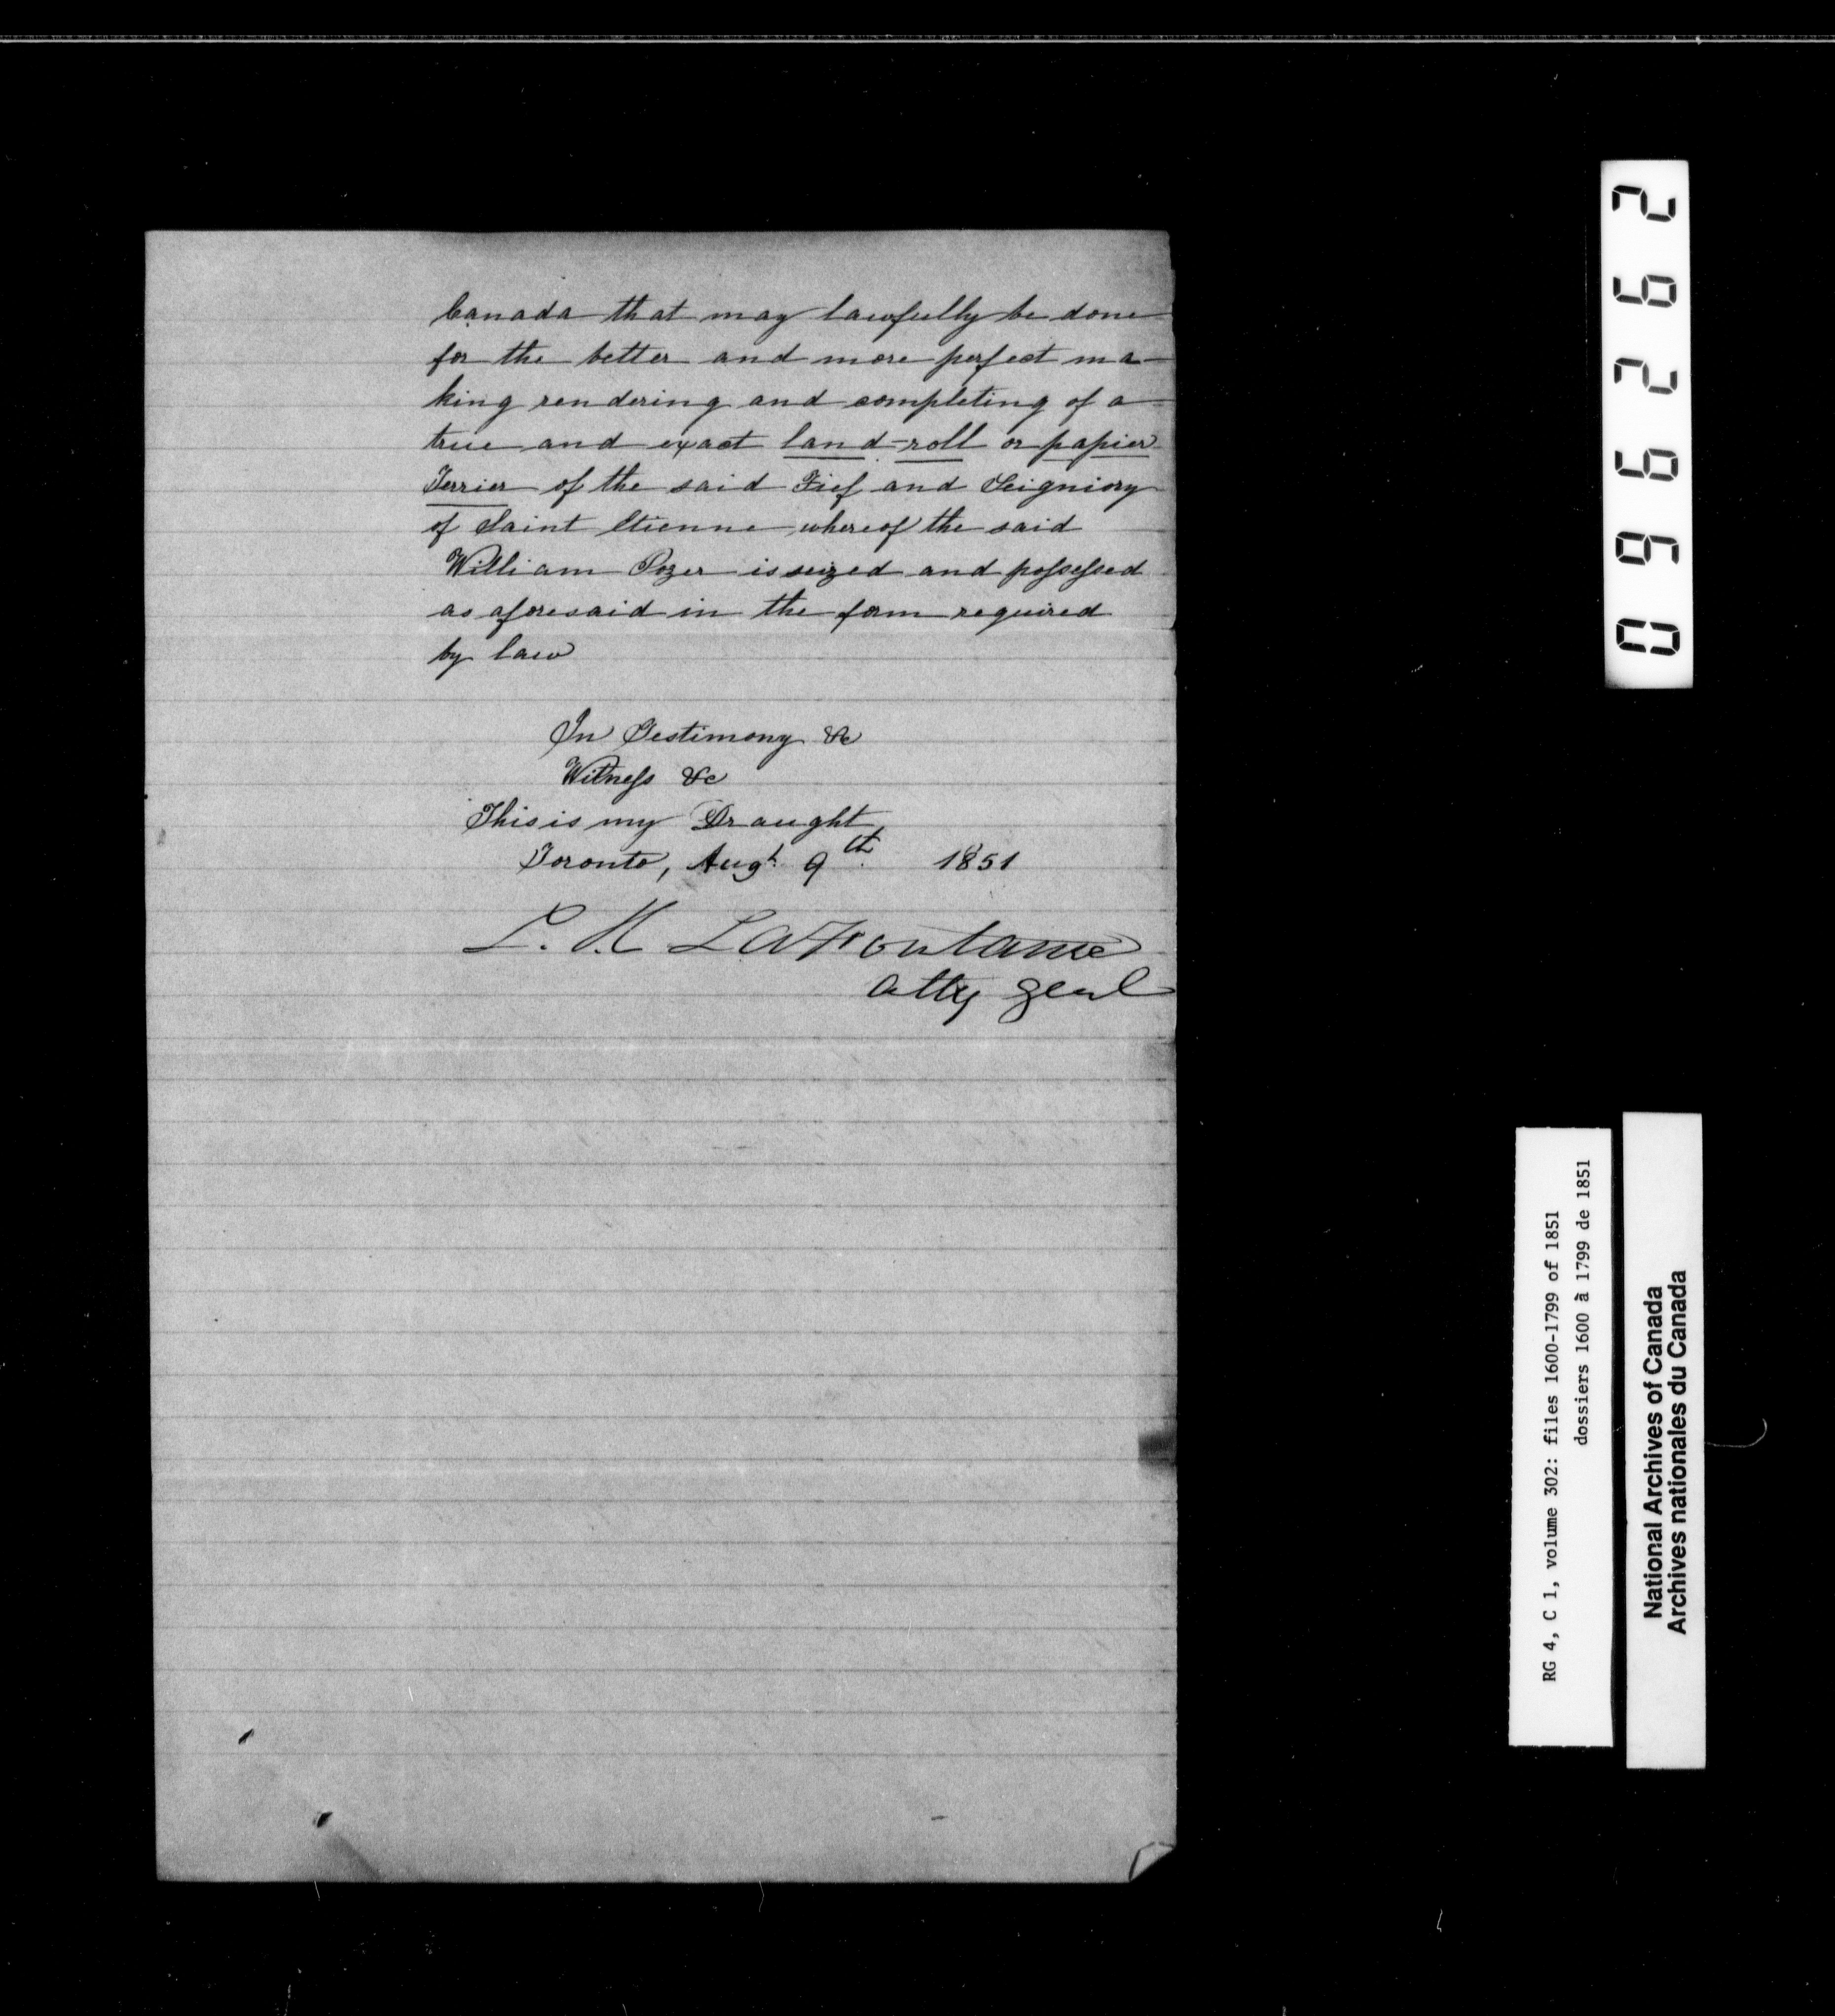 Canada that may lawfully be done
for the better and more perfect ma-
king rendering and completing of a
true and exact land-roll or papier
Terrier of the said Fief and Seigniory
of Saint Etienne whereof the said
William Pozer is seized and possessed
as aforesaid in the form required
by law
In Testimony &c
Witness &c
This is my Draught
Toronto, Augt 9th 1851
L. H LaFontaine
Atty Genl
096262
RG 4, C 1, volume 302: files 1600-1799 of 1851
dossiers 1600 à 1799 de 1851
National Archives of Canada
Archives nationales du Canada